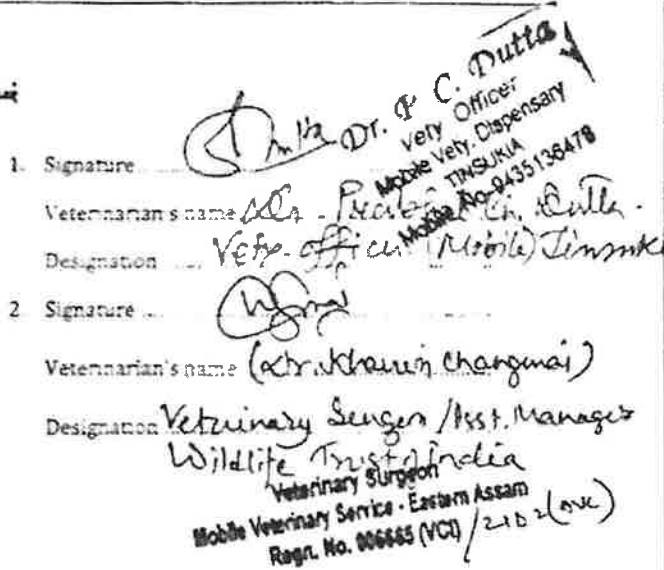 Dr. P C. Dutta
Vety Officer
Mobile Vety. Dispensary
TINSUKIA
Mobile No-9435136478
1. Signature
Veterinarian's name Dr. Ch. Dutta.
Designation Vety. Officer (Mobile) Tinsuki
2 Signature
Veternarian's name (Dr. Khanin Changmai)
Designation Veterinary Surgeon / Asst. Manager
Wildlife Trust of India
Veterinary Surgeon
Mobile Veterinary Service - Eastern Assam
Regn. No. 006665 (VCI)